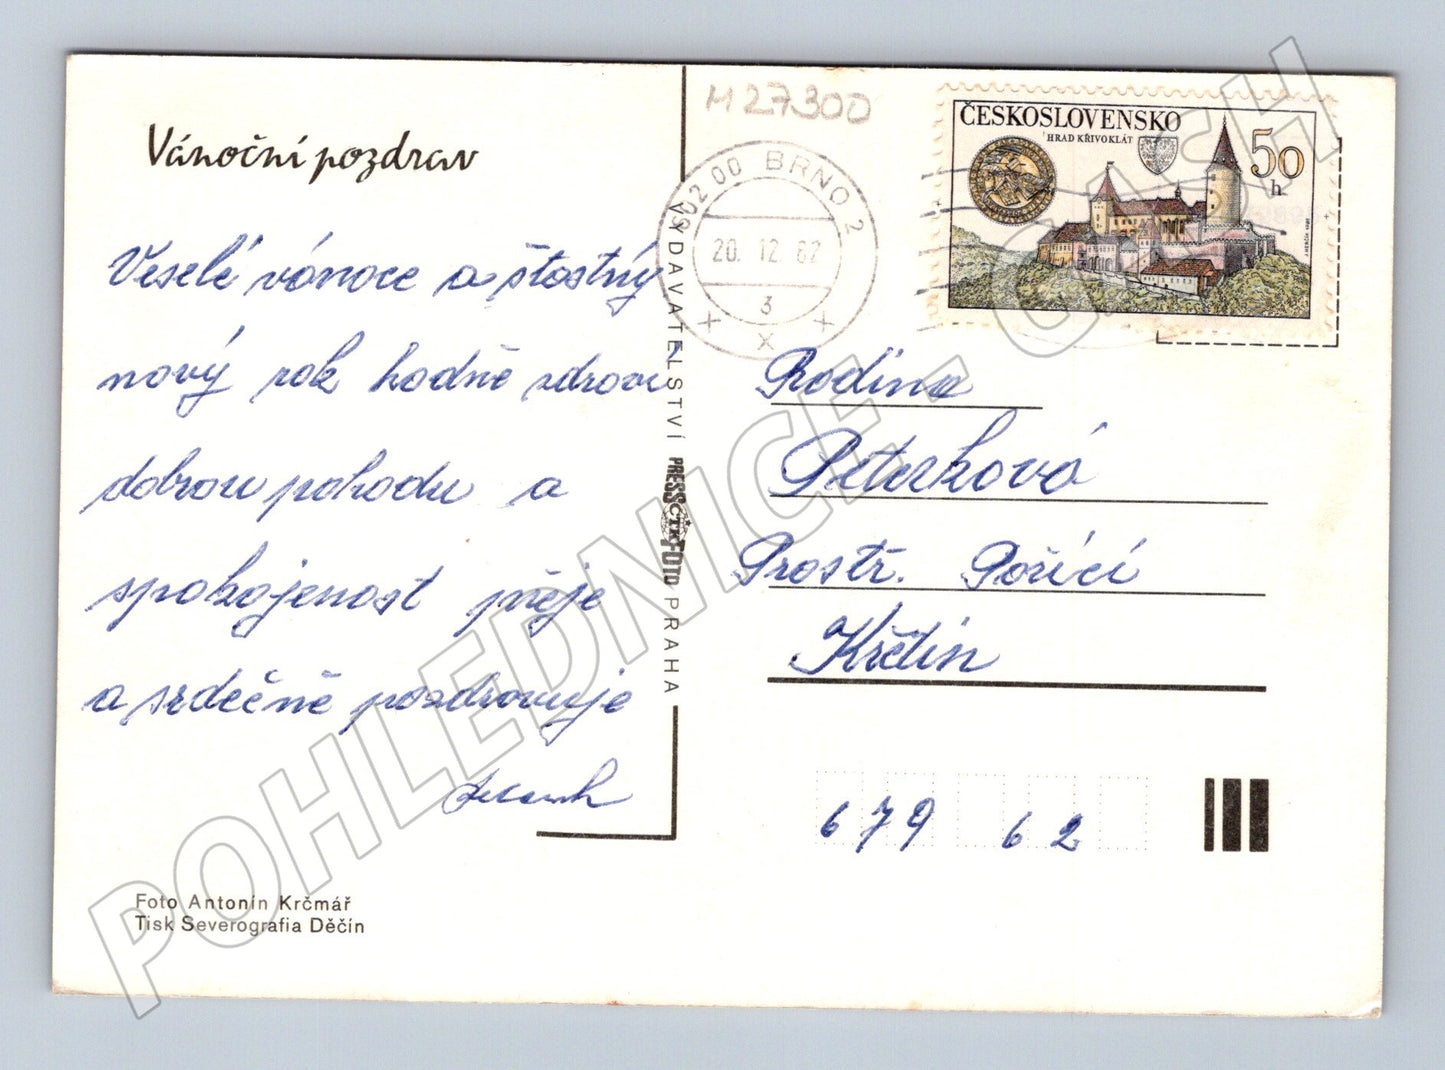 Vánoční pozdrav
Veselé vánoce a šťastný
nový rok hodně zdraví
dobrou pohodu a
spokojenost přeje
a srdečně pozdravuje
Foto Antonín Krčmář
Tisk Severografia Děčín
VYDAVATELSTVÍ PRESSFOTO PRAHA
ČTK
H27300
602 00 BRNO 2
20. 12. 82
3
ČESKOSLOVENSKO
HRAD KŘIVOKLÁT
50
h
Rodina
Peterková
Prostř. Poříčí
Křetín
679 62
POHLEDNICE - CASH